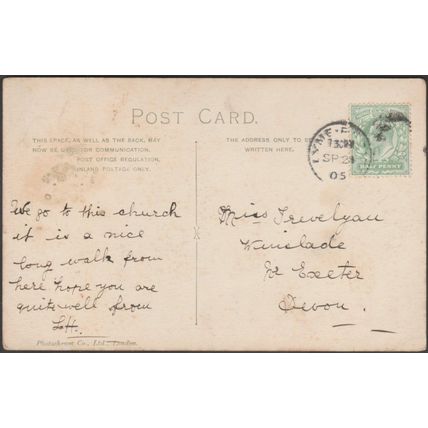 POST CARD.
THIS SPACE, AS WELL AS THE BACK, MAY
NOW BE USED FOR COMMUNICATION.
POST OFFICE REGULATION.
INLAND POSTAGE ONLY.
THE ADDRESS ONLY TO BE
WRITTEN HERE.
LYME
SP 2
05
HALF PENNY
We go to this church
it is a nice
long walk from
here hope you are
quite well from
LH.
Miss Trevelyan
Winslade
Nr Exeter
Devon.
Photochrom Co., Ltd., London.